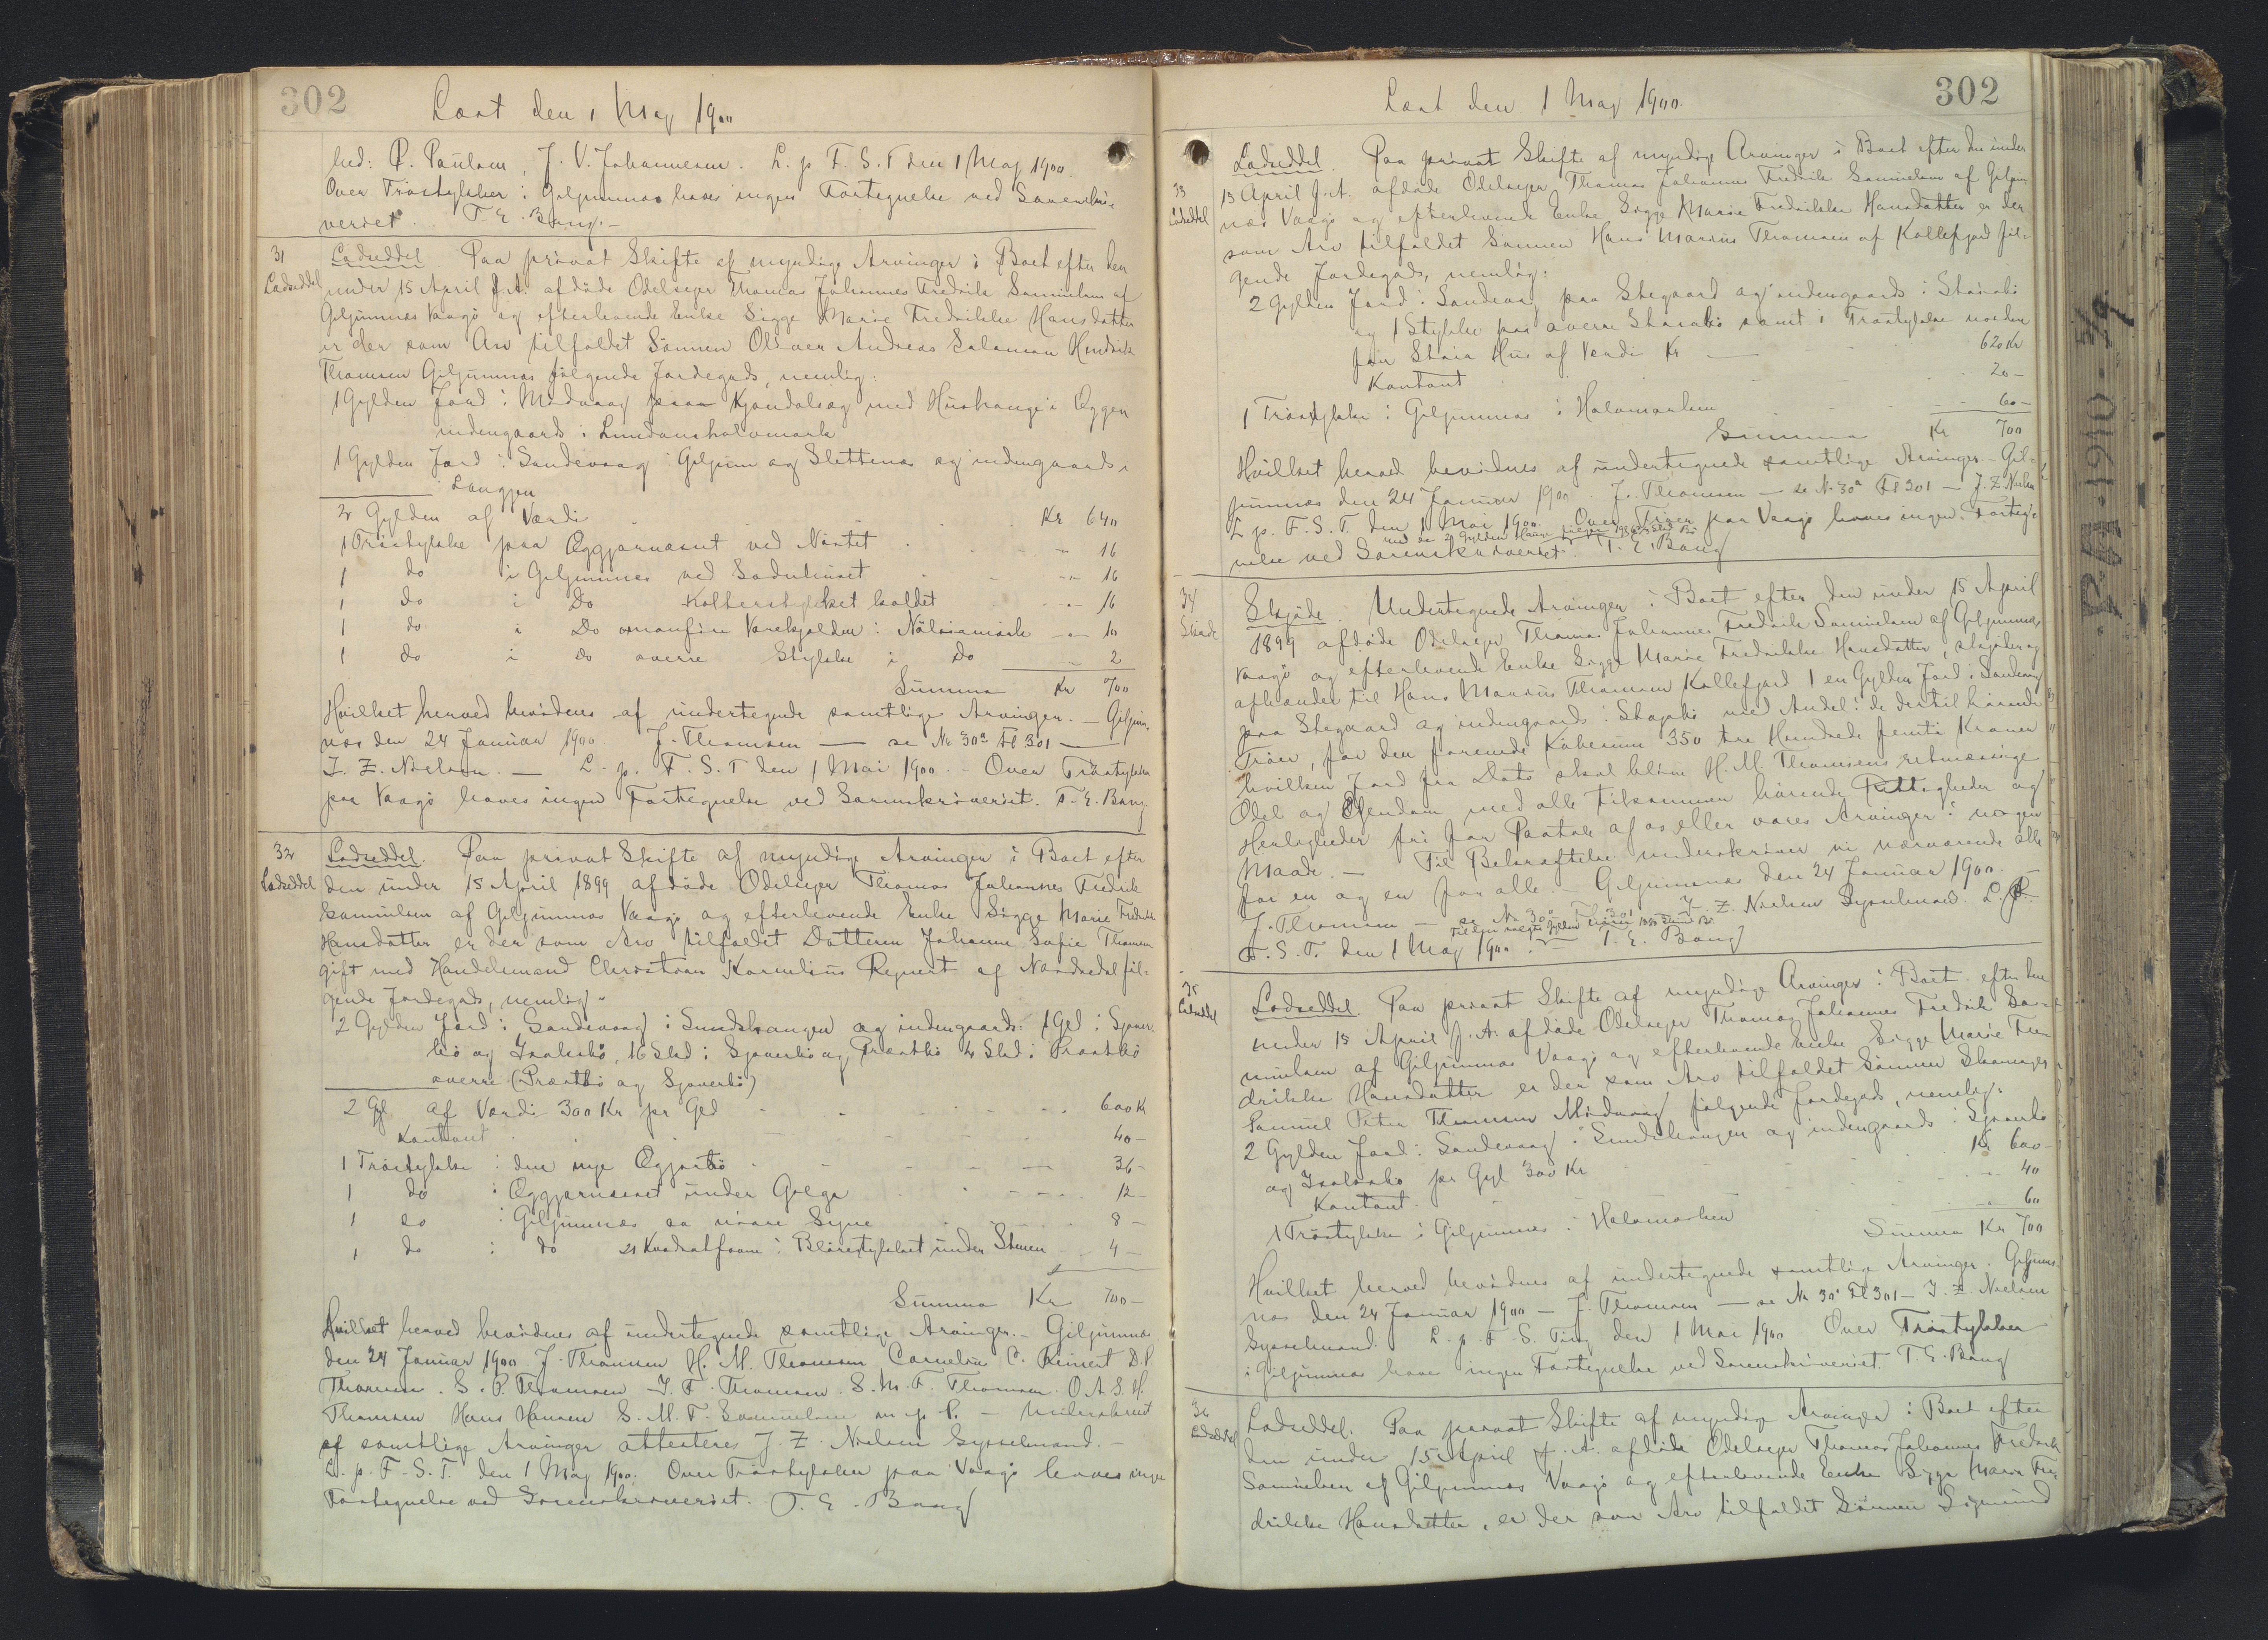 302
Læst den 1 Maj 1900
hed: P. Paulsen, J. V. Johannesen. L. p. F. S. T den 1 Maj 1900.
Over Tröstykker i Giljumnæs haves ingen Fortegnelse ved Sorenskri-
veriet. T. E. Bang.-
31
Lodseddel
Lodseddel Paa privat Skifte af myndige Arvinger i Boet efter den
under 15 April f. A. afdöde Odelsejer Thomas Johannes Fredrik Samuelsen af
Giljumnæs Vaagö og efterlevende Enke Sigge Marie Fredrikke Hansdatter
er der som Arv tilfaldet Sönnen Oliver Andreas Salamon Hendrik
Thomsen Giljumnæs fölgende Jordegods, nemlig:
1 Gylden Jord i Midvaag paa Kjondalsog med Hushauge i Oggen
indengaards i Lundansholomark
1 Gylden Jord i Sandevaag i Giljum og Slettenæs og indengaards i
Langjen
2 Gylden af Værdi Kr 640
1 Tröstykke paa Oggjarnæsset ved Nöstet - 16
1 do i Giljumnæs ved Sodnhuset - 16
1 do i Do Kolterstykket kaldet - 16
1 do i Do ovenfor Varekjelden i Nölsiamark - 10
1 do i Do överre Stykke i Do - 2
Summa Kr 700
Hvilket herved bevidnes af undertegnede samtlige Arvinger. - Giljum-
næs den 24 Januar 1900 J. Thomsen - se No 30a Fl 301 -
J. Z. Nielsen. - L. p. F. S. T den 1 Mai 1900. - Over Tröstykker
paa Vaagö haves ingen Fortegnelse ved Sorenskriveriet. T. E. Bang
32
Lodseddel
Lodseddel. Paa privat Skifte af myndige Arvinger i Boet efter
den under 15 April 1899 afdöde Odelsejer Thomas Johannes Fredrik
Samuelsen af Giljumnæs Vaagö og efterlevende Enke Sigge Marie Fredrikke
Hansdatter er der som Arv tilfaldet Datteren Johanne Sofie Thomsen
gift med Handelsmand Christian Kornelius Reinert af Nordredal föl-
gende Jordegods, nemlig.
2 Gylden Jord i Sandevaag i Sundshaugen og indengaards: 1 Gyl i Sjover-
bö og Isaksbö, 16 Skd i Sjoverbö og Præstbö 4 Skd i Præstbö
överre (Præstbö og Sjoverbö)
2 Gyl af Værdi 300 Kr pr Gyl 600 Kr
Kontant 40 -
1 Tröstykke i den nye Oggjarbö 36 -
1 do i Oggjarnæsset under Gelga 12 -
1 do i Giljumnæs 8 -
1 do i do 21 Kvadratfavne i Blörestykket under Stenen 4 -
Summa Kr 700 -
Hvilket herved bevidnes af undertegnede samtlige Arvinger. - Giljumnæs
den 24 Januar 1900. J. Thomsen H. M. Thomsen Cornelius C. Reinert D. P.
Thomsen. S. P. Thomsen J. F. Thomsen. S. M. F. Thomsen. O. A. S. H.
Thomsen Hans Hansen S. M. F. Samuelsen m. p. P. - Underskrevet
af samtlige Arvinger attesteres J. Z. Nielsen Sysselmand. -
L. p. F. S. T. den 1 Maj 1900. Over Tröstykker paa Vaagö haves ingen
Fortegnelse ved Sorenskriveriet. T. E. Bang
Læst den 1 Maj 1900.
302
33
Lodseddel
Lodseddel. Paa privat Skifte af myndige Arvinger i Boet efter den under
15 April f. A. afdöde Odelsejer Thomas Johannes Fredrik Samuelsen af Giljum-
næs Vaagö og efterlevende Enke Sigge Marie Fredrikke Hansdatter er der
som Arv tilfaldet Sönnen Hans Marius Thomsen af Kollefjord föl-
gende Jordegods, nemlig:
2 Gylden Jord i Sandevaag paa Skegaard og indengaards i Skarabö
og 1 Stykke paa överre Skarabö samt i Tröstykke norden
for Skaia Hus af Værdi Kr 620 Kr
Kontant 20 -
1 Tröstykke i Giljumnæs i Holomarken 60 -
Summa Kr 700
Hvilket herved bevidnes af undertegnede samtlige Arvinger. - Gil-
jumnæs den 24 Januar 1900. J. Thomsen - se No 30a Fl 301 - J. Z. Nielsen
L. p. F. S. T. den 1 Mai 1900. Over Tröer paa Vaagö haves ingen Forteg-
nelse ved Sorenskriveriet. T. E. Bang
34
Skjöde
Skjöde. Undertegnede Arvinger i Boet efter den under 15 April
1899 afdöde Odelsejer Thomas Johannes Fredrik Samuelsen af Giljumnæs
Vaagö og efterlevende Enke Sigge Marie Fredrikke Hansdatter, skjöder og
afhænder til Hans Marius Thomsen Kollefjord 1 en Gylden Jord i Sandevaag
paa Skegaard og indengaards i Skarabö med Andel i de dertil hörende
Tröer, for den forenede Köbesum 350 tre Hundrede femti Kroner
hvilken Jord fra Dato skal blive H. M. Thomsens retmæssige
Odel og Ejendom med alle tilkommen hörende Rettigheder og
Herligheder fri for Paatale af os eller vores Arvinger i nogen
Maade. - Til Bekræftelse underskriver vi nærværende alle
for en og en for alle. - Giljumnæs den 24 Januar 1900. -
J. Thomsen - se No 30a Fl 301 J. Z. Nielsen Sysselmand. L. P.
F. S. T. den 1 Maj 1900. T. E. Bang
35
Lodseddel
Lodseddel. Paa privat Skifte af myndige Arvinger i Boet efter den
under 15 April f. A. afdöde Odelsejer Thomas Johannes Fredrik Sa-
muelsen af Giljumnæs Vaagö og efterlevende Enke Sigge Marie Fre-
drikke Hansdatter er der som Arv tilfaldet Sönnen
Samuel Peter Thomsen Midvaag fölgende Jordegods, nemlig:
2 Gylden Jord i Sandevaag i Sundshaugen og indengaards i Sjoverbö
og Isaksbö pr Gyl 300 Kr Kr 600 -
Kontant. 40
1 Tröstykke i Giljumnæs i Holomarken 60
Summa Kr 700
Hvilket herved bevidnes af undertegnede samtlige Arvinger. Giljum-
næs den 24 Januar 1900 - J. Thomsen - se No 30a Fl 301 - J. Z. Nielsen
Sysselmand. L. p. F. S. Ting den 1 Mai 1900 Over Tröstykker
i Giljumnæs haves ingen Fortegnelse ved Sorenskriveriet. T. E. Bang
36
Lodseddel
Lodseddel. Paa privat Skifte af myndige Arvinger i Boet efter
den under 15 April f. A. afdöde Odelsejer Thomas Johannes Fredrik
Samuelsen af Giljumnæs Vaagö og efterlevende Enke Sigge Marie Fre-
drikke Hansdatter, er der som Arv tilfaldet Sönnen Sigmund